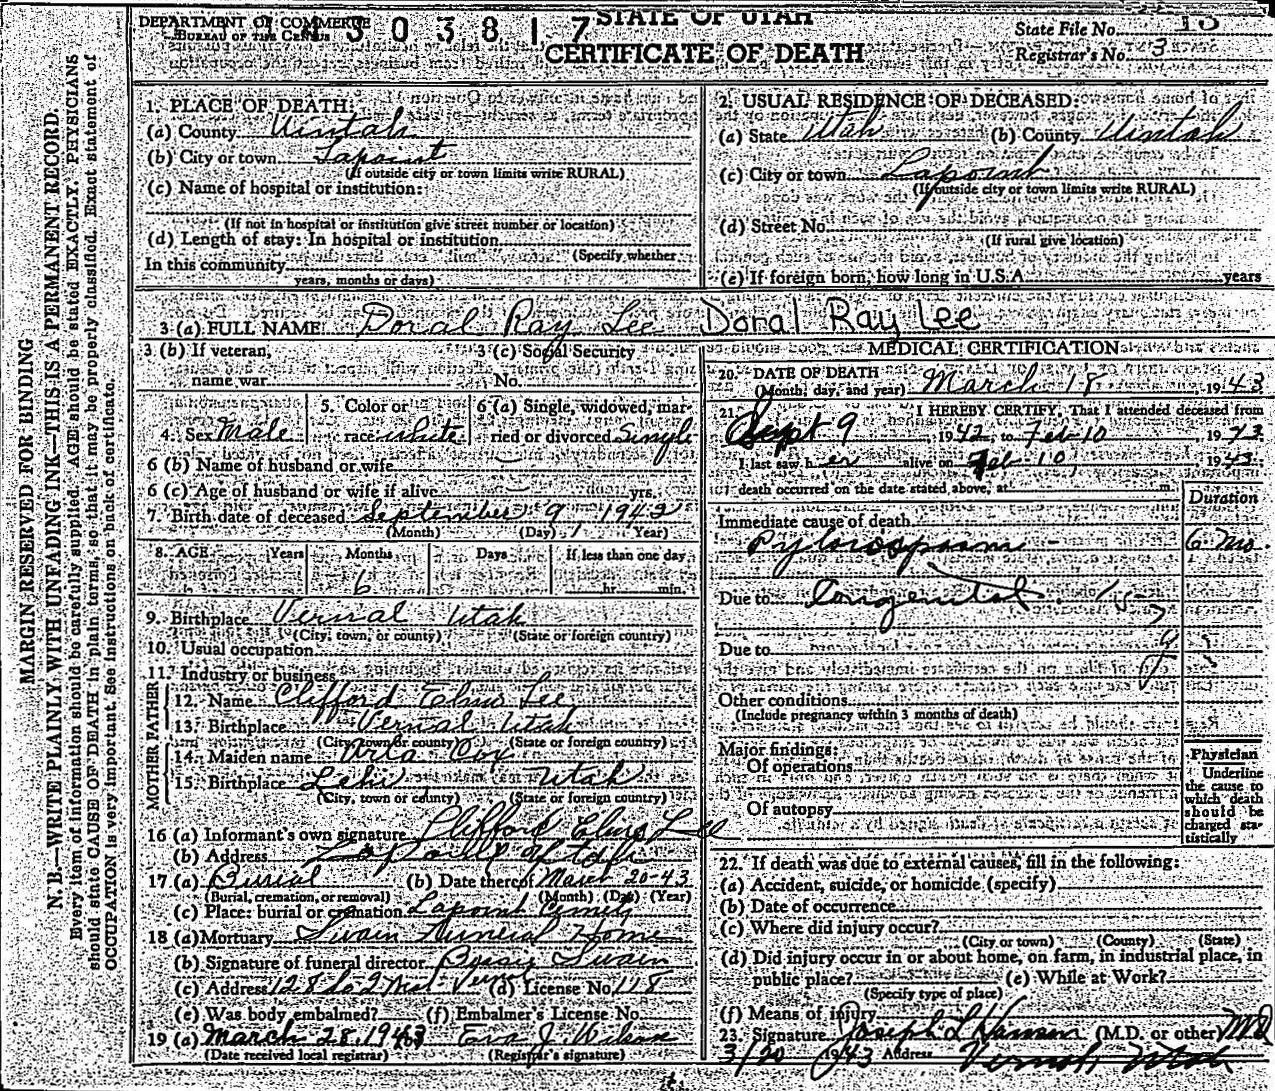 DEPARTMENT OF COMMERCE
BUREAU OF THE CENSUS
303817
STATE OF UTAH
CERTIFICATE OF DEATH
State File No. 15
Registrar's No. 3
MARGIN RESERVED FOR BINDING
N. B.—WRITE PLAINLY, WITH UNFADING INK—THIS IS A PERMANENT RECORD.
Every item of information should be carefully supplied. AGE should be stated EXACTLY. PHYSICIANS
should state CAUSE OF DEATH in plain terms, so that it may be properly classified. Exact statement of
OCCUPATION is very important. See instructions on back of certificate.
1. PLACE OF DEATH:
(a) County Uintah
(b) City or town Lapoint
(If outside city or town limits write RURAL)
(c) Name of hospital or institution:
(If not in hospital or institution give street number or location)
(d) Length of stay: In hospital or institution
(Specify whether
In this community
years, months or days)
2. USUAL RESIDENCE OF DECEASED:
(a) State Utah (b) County Uintah
(c) City or town Lapoint
(If outside city or town limits write RURAL)
(d) Street No.
(If rural give location)
(e) If foreign born, how long in U.S.A. years
3 (a) FULL NAME Doral Ray Lee Doral Ray Lee
3 (b) If veteran,
name war
3 (c) Social Security
No.
4. Sex Male
5. Color or
race white
6 (a) Single, widowed, mar-
ried or divorced Single
6 (b) Name of husband or wife
6 (c) Age of husband or wife if alive yrs.
7. Birth date of deceased September 9 1942
(Month) (Day) (Year)
8. AGE Years Months Days If less than one day
6 hr. min.
9. Birthplace Vernal Utah
(City, town, or county) (State or foreign country)
10. Usual occupation
11. Industry or business
FATHER
12. Name Clifford Elmo Lee
13. Birthplace Vernal Utah
(City, town or county) (State or foreign country)
MOTHER
14. Maiden name Arla Cox
15. Birthplace Lehi Utah
(City, town or county) (State or foreign country)
16 (a) Informant's own signature Clifford Elmo Lee
(b) Address Utah
17. (a) Burial (b) Date thereof March 20-43
(Burial, cremation, or removal) (Month) (Day) (Year)
(c) Place: burial or cremation Lapoint
18 (a) Mortuary Swain Funeral Home
(b) Signature of funeral director Swain
(c) Address (d) License No. 118
(e) Was body embalmed? (f) Embalmer's License No.
19 (a) March 28, 1943 Eva J. Wilson
(Date received local registrar) (Registrar's signature)
MEDICAL CERTIFICATION
20. DATE OF DEATH
(Month, day, and year) March 18 1943
21. I HEREBY CERTIFY, That I attended deceased from
Sept 9 1942, to Feb 10 1943
I last saw h er alive on Feb 10, 1943
death occurred on the date stated above, at m.
Duration
Immediate cause of death
Pylorospasm - 6 mo.
Due to Congenital
Due to
Other conditions
(Include pregnancy within 3 months of death)
Major findings:
Of operations
Of autopsy
Physician
Underline
the cause to
which death
should be
charged sta-
tistically
22. If death was due to external causes, fill in the following:
(a) Accident, suicide, or homicide (specify)
(b) Date of occurrence
(c) Where did injury occur?
(City or town) (County) (State)
(d) Did injury occur in or about home, on farm, in industrial place, in
public place? (e) While at Work?
(Specify type of place)
(f) Means of injury
23. Signature Joseph L Hansen (M.D. or other) MD
3/20 1943 Address Vernal, Utah